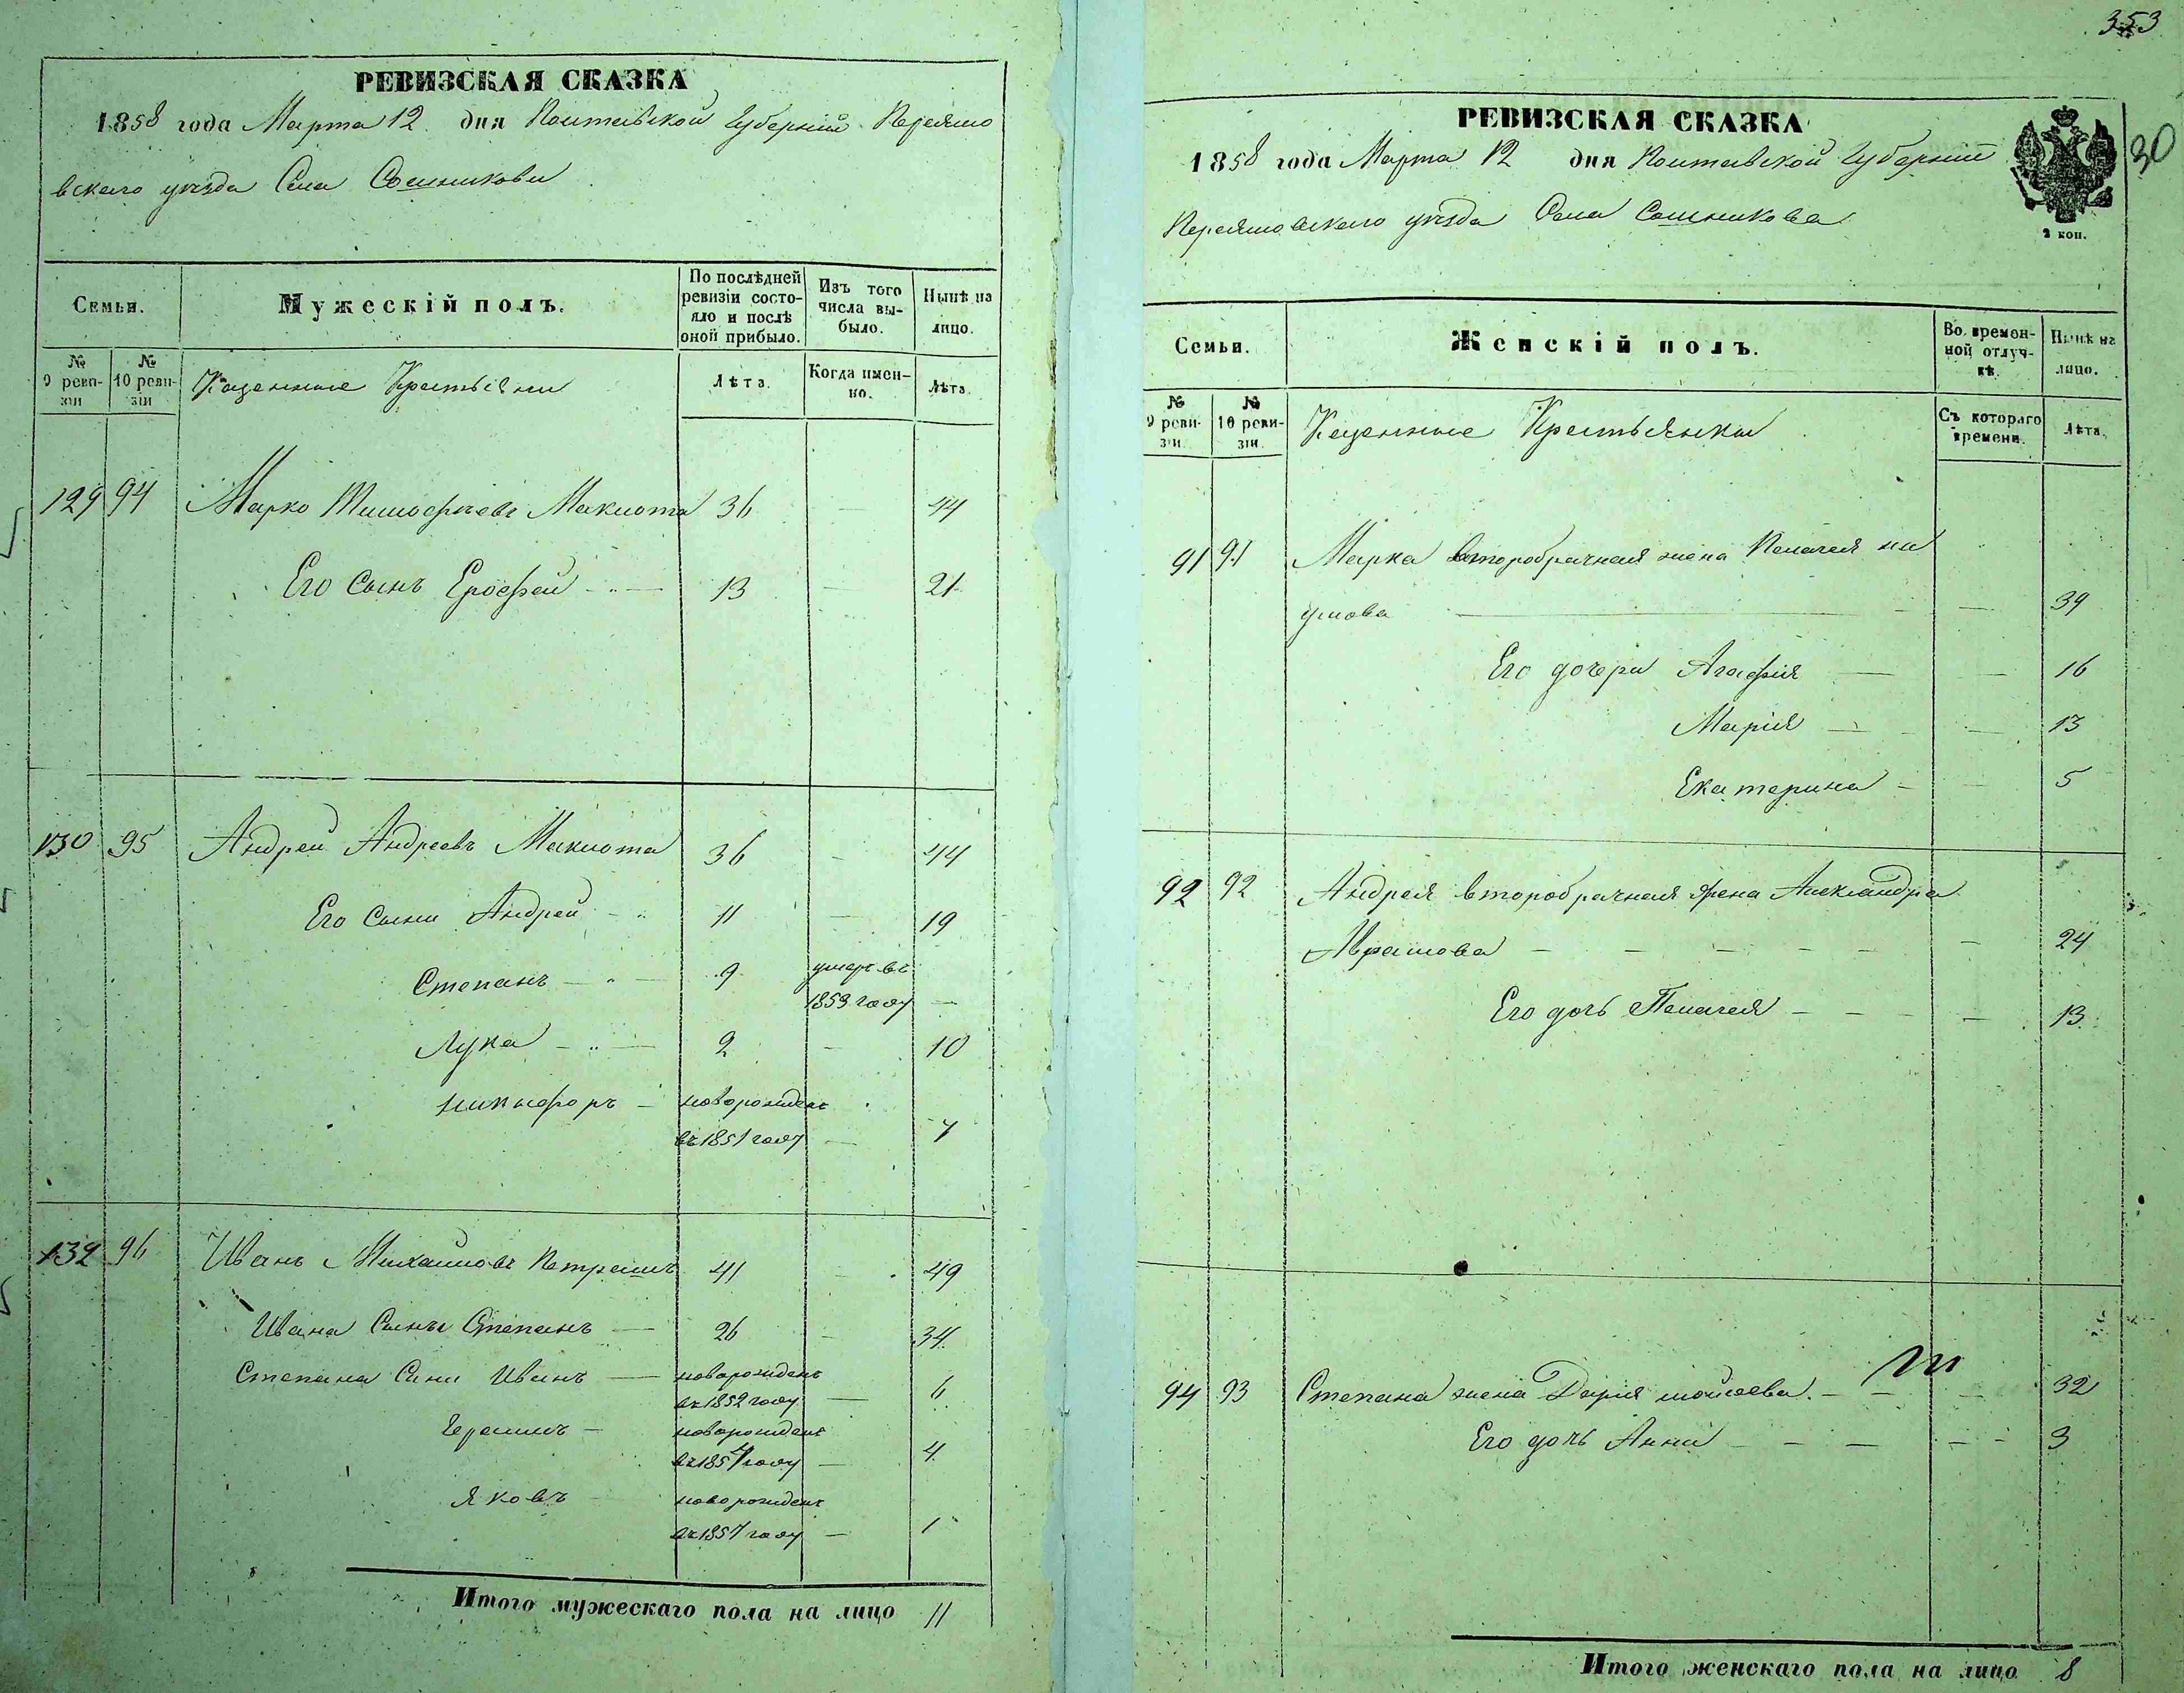 РЕВИЗСКАЯ СКАЗКА
1858 года Марта 12 дня Полтавской Губернии Переясло
вскаго уезда Села Сошникова
Семьи.
Мужескій полъ.
По послѣдней ревизіи состояло и послѣ оной прибыло.
Изъ того числа выбыло.
Нынѣ на лицо.
№ 9 ревизіи
№ 10 ревизіи
Казенные Крестьяни
Лѣта.
Когда именно.
Лѣта.
129 94 Марко Тимофѣевъ Маклота 36 — 44
Его Сынъ Ерофей — 13 — 21
130 95 Андрей Андреевъ Маклота 36 — 44
Его Сыни Андрей — 11 — 19
Степанъ — 9 умеръ въ
1853 году —
Лука — 2 — 10
Никифоръ — новорожденъ
въ 1851 году — 7
132 96 Иванъ Михайловъ Петрашъ 41 — 49
Ивана Сынъ Степанъ — 26 — 34
Степана Сини Иванъ — новорожденъ
въ 1852 году — 6
Герасимъ — новорожденъ
въ 1854 году — 4
Яковъ — новорожденъ
въ 1857 году — 1
Итого мужескаго пола на лицо 11
353
30
РЕВИЗСКАЯ СКАЗКА
1858 года Марта 12 дня Полтавской Губерніи
Переясловскаго уѣзда Села Сошникова
2 коп.
Семьи.
Женскій полъ.
Во временной отлучкѣ.
Нынѣ на лицо.
№ 9 ревизіи.
№ 10 ревизіи.
Казенные Крестьянки
Съ котораго времени.
Лѣта.
91 91 Марка второбрачная жена Пелагея На
умова — — 39
Его дочери Агафія — — 16
Марія — — 13
Екатерина — — 5
92 92 Андрея второбрачная жена Александра
Аврамова — — 24
Его дочь Пелагея — — 13
94 93 Степана жена Дарія Мойсеева. — — 32
Его дочь Анна — — 3
Итого женскаго пола на лицо 8